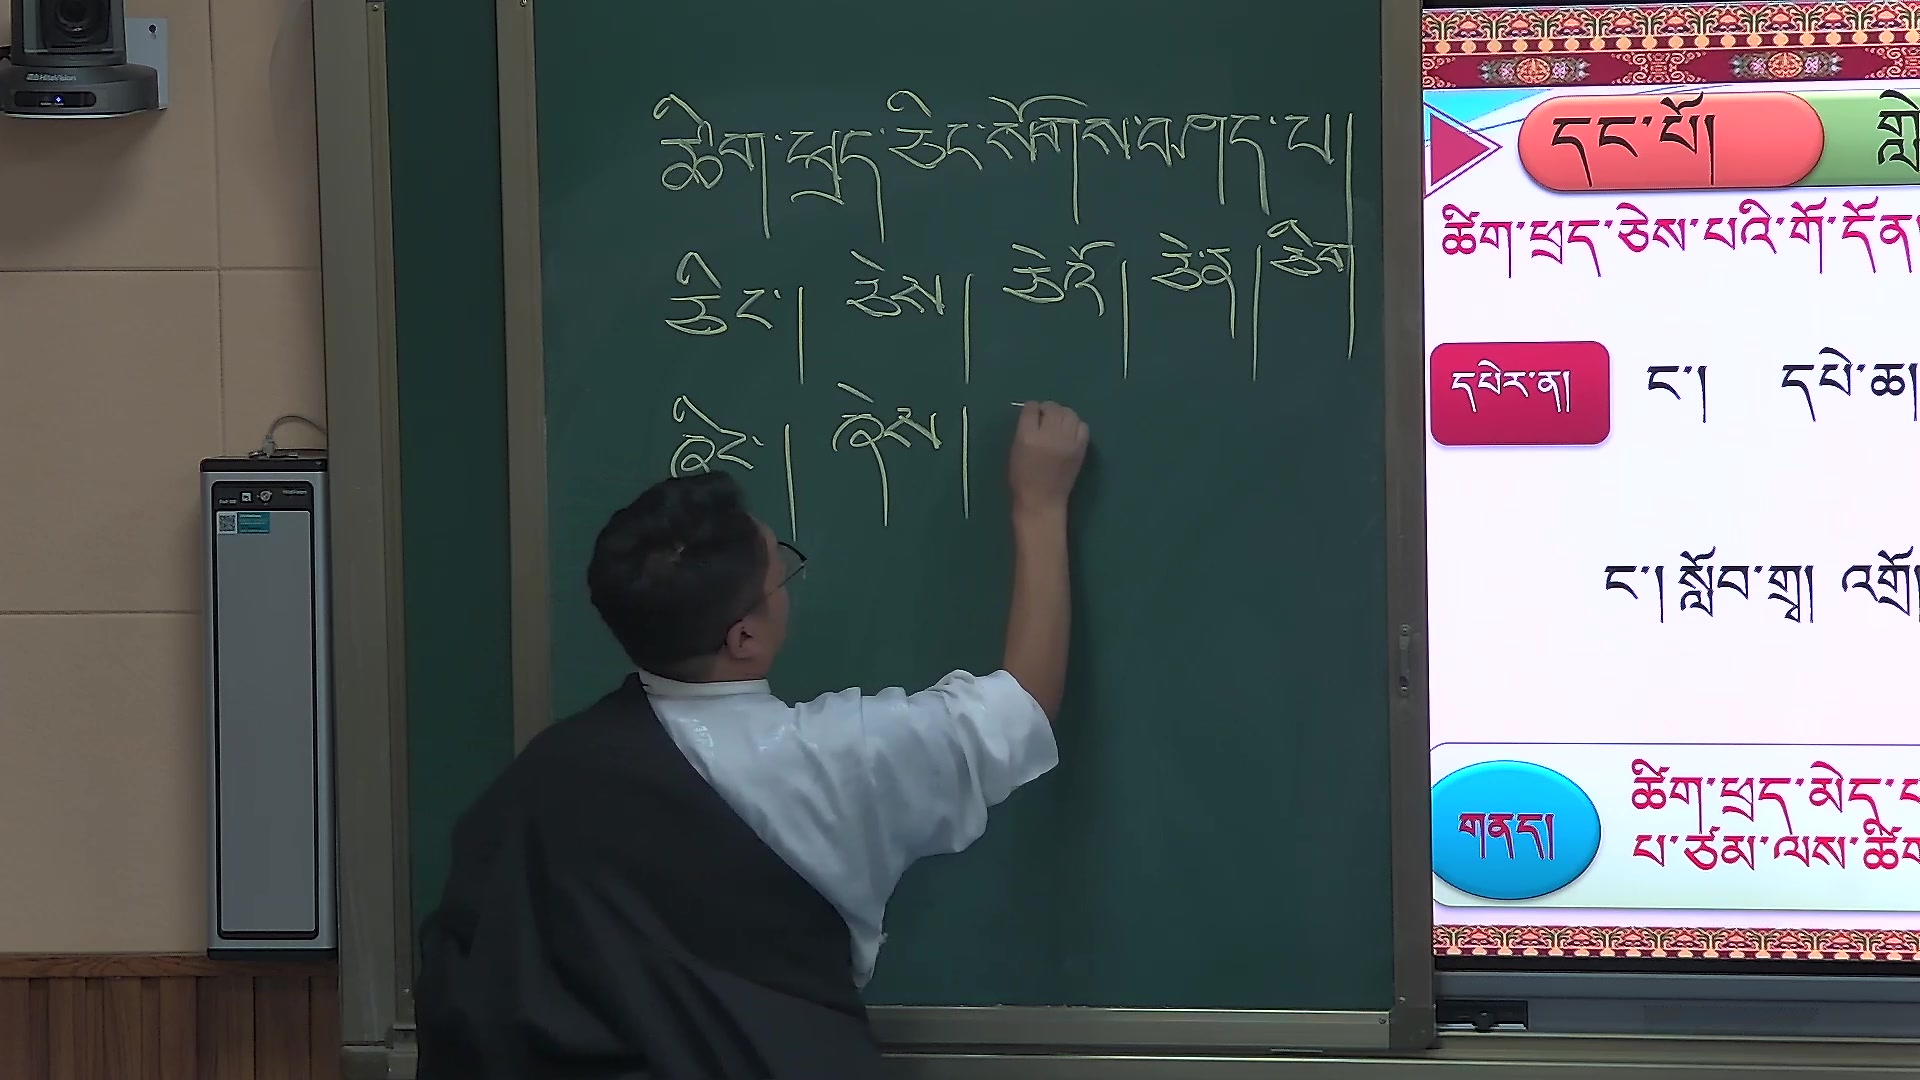 ཚིག་ཕྲད་ཅིང་སོགས་བཤད་པ།
ཅིང་། ཅེས། ཅེའོ། ཅེན། ཅིག
ཞིང་། ཞེས།
དང་པོ།
ཚིག་ཕྲད་ཅེས་པའི་གོ་དོན།
དཔེར་ན།
ང་། དཔེ་ཆ།
ང་། སློབ་གྲྭ། འགྲོ
གནད།
ཚིག་ཕྲད་མེད་
པ་ཙམ་ལས་ཚིག
HiteVision